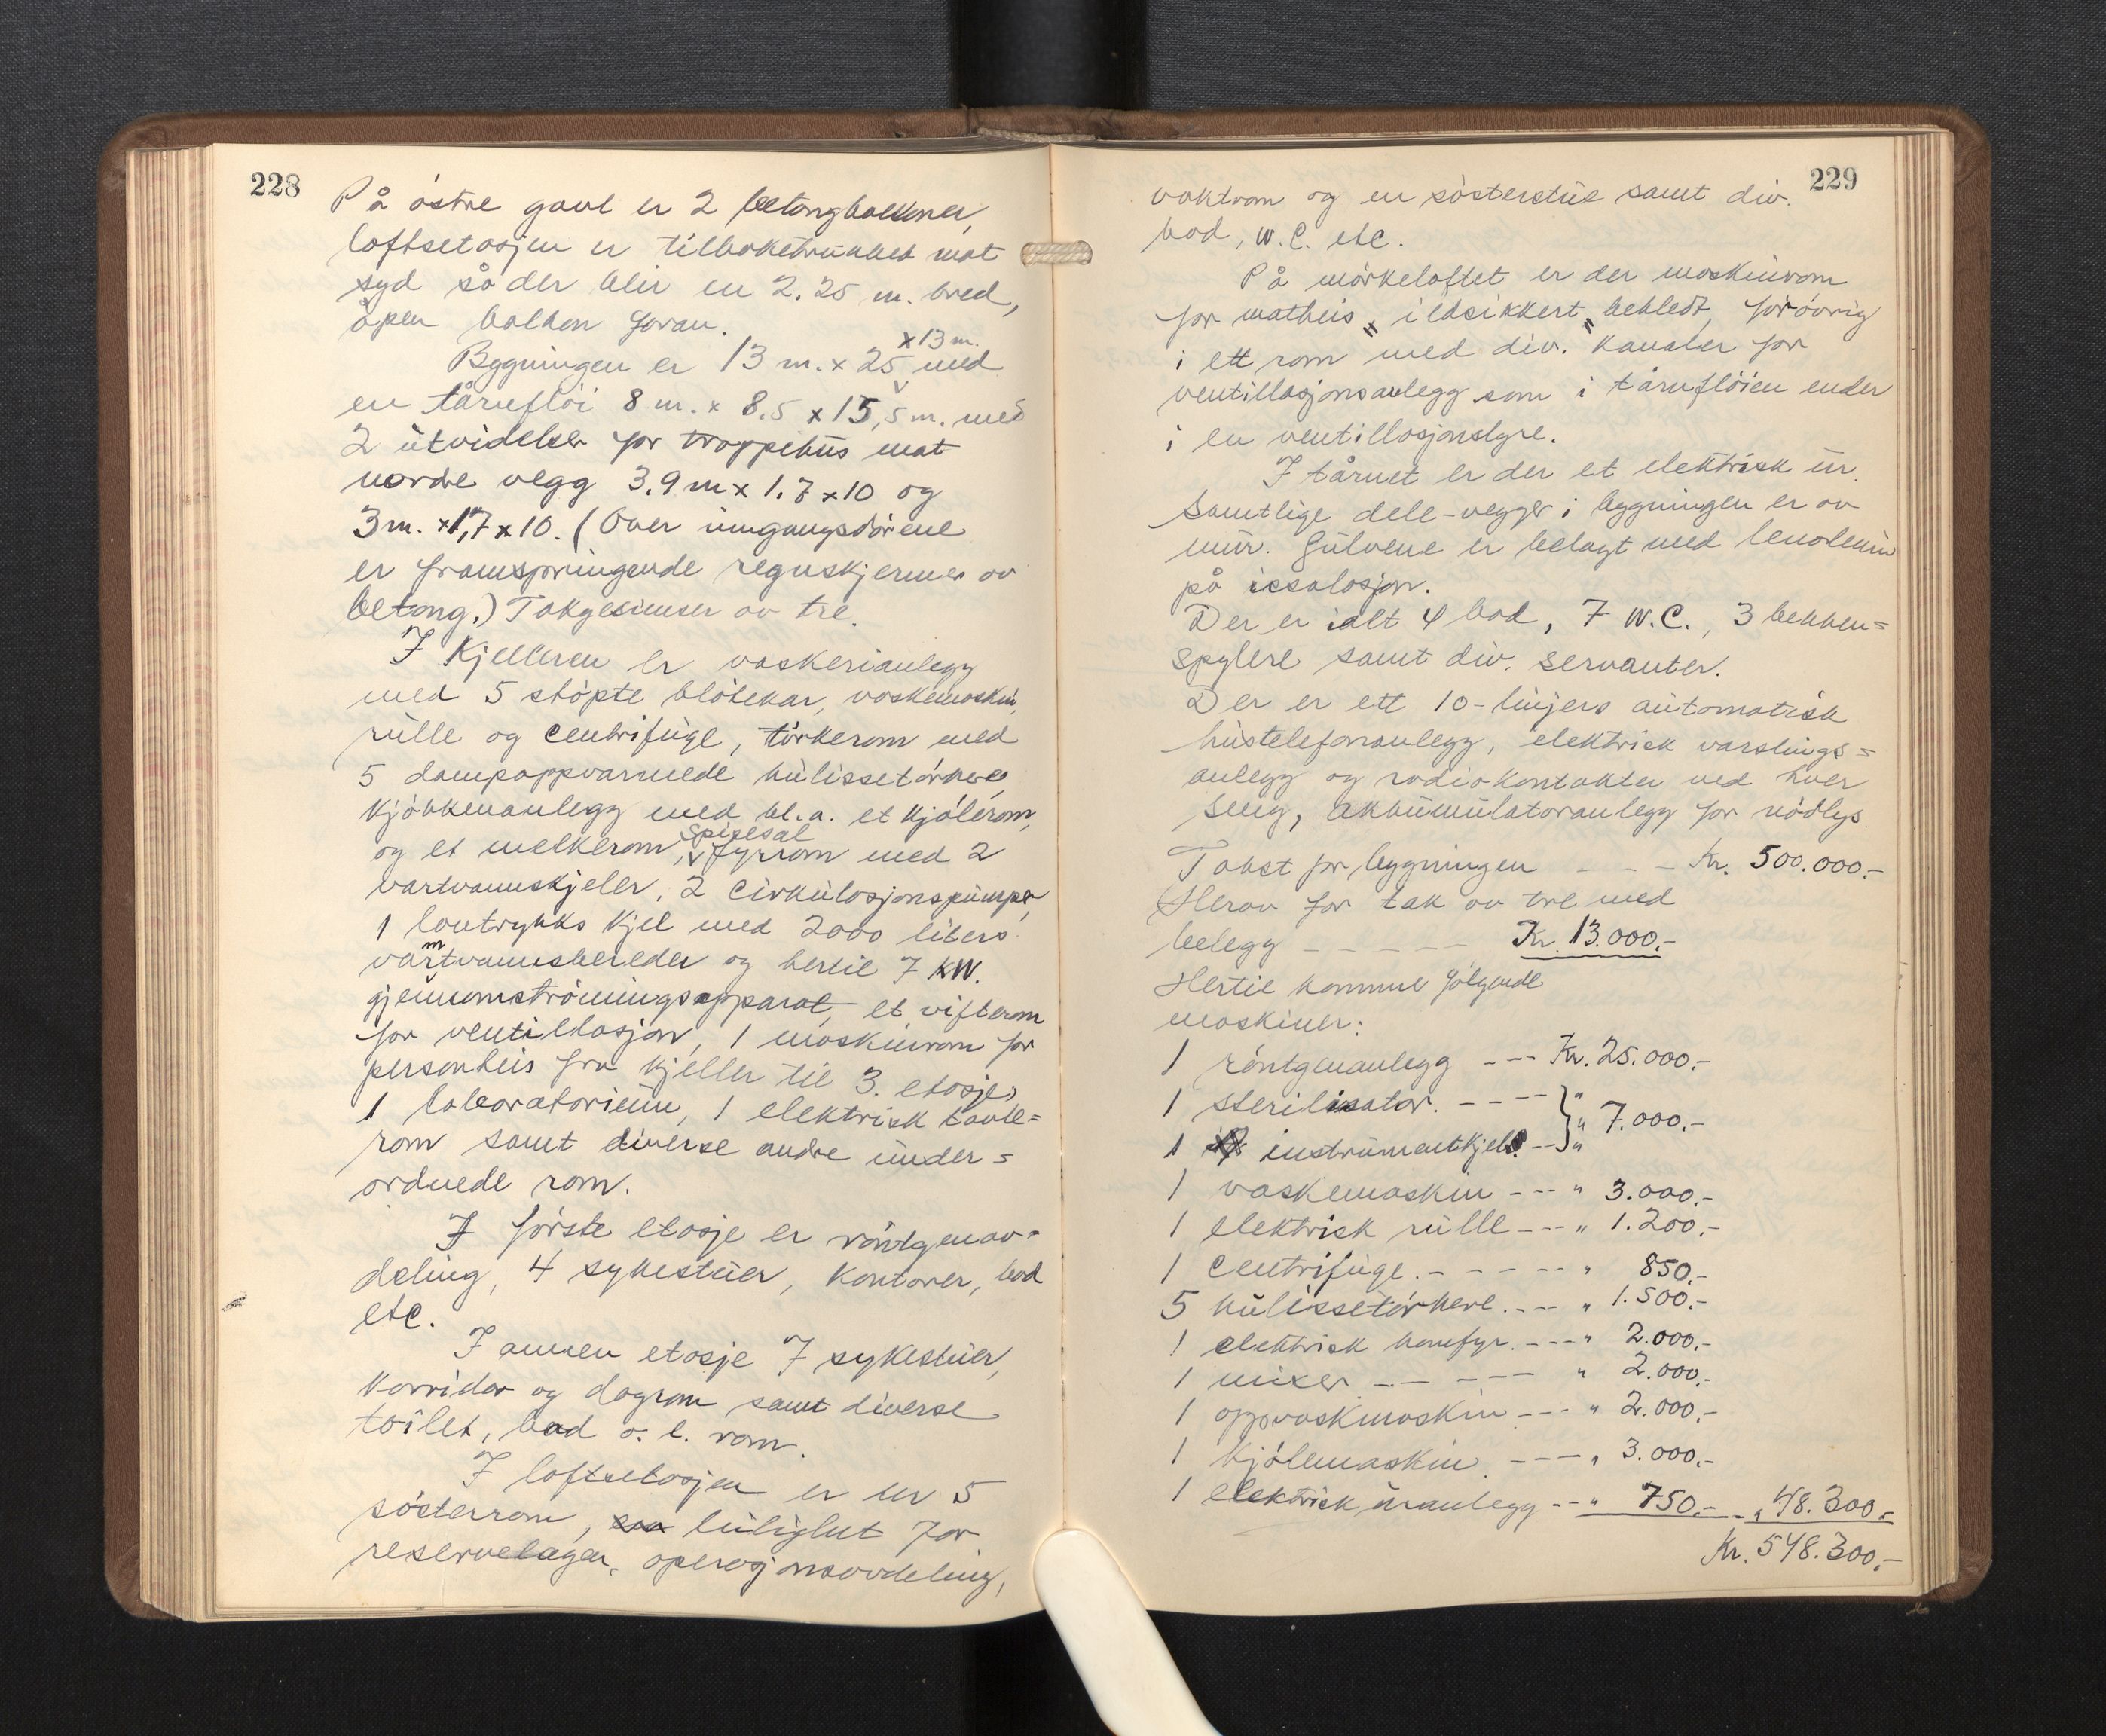 228
På östre gavl er 2 betongbalkoner,
loftsetasjen er tilbaketrukket mot
syd så der blir en 2.25 m. bred,
åpen balkon foran.
x 13 m.
Bygningen er 13 m. x 25 med
en tårnflöi 8 m. x 8.5 x 15,5 m. med
2 utvidelser for trappehus mot
nordre vegg 3.9 m x 1.7 x 10 og
3 m. x 1,7 x 10. (Over inngangsdörene
er framspringende regnskjermer av
betong.) Takgesimser av tre.
I Kjelleren er vaskerianlegg
med 5 stöpte blötekar, vaskemaskin,
rulle og centrifuge, törkerom med
5 dampoppvarmede kulissetörkere,
kjökkenanlegg med bl.a. et kjölerom,
spisesal
og et melkerom, fyrrom med 2
vartvannskjeler, 2 cirkulasjonspumper,
1 lavtrykks kjel med 2000 liters
varmtvannsbereder og hertil 7 KW.
gjennomströmningsapparat, et vifterom
for ventillasjon, 1 maskinrom for
personheis fra kjeller til 3. etasje,
1 laboratorium, 1 elektrisk tavle=
rom samt diverse andre under=
ordnede rom.
I förste etasje er röntgenav=
deling, 4 sykestuer, kontorer, bad
etc.
I annen etasje 7 sykestuer,
korridor og dagrom samt diverse
toilet, bad o. l. rom.
I loftsetasjen er der 5
sösterrom, leilighet for
reservelæger, operasjonsavdeling,
229
vaktrom og en sösterstue samt div.
bad, W.C. etc.
På mörkeloftet er der maskinrom
for matheis " ildsikkert " bekledt, forövrig
i ett rom med div. kanaler for
ventillasjonsanlegg som i tårnflöien ender
i en ventillasjonslyre.
I tårnet er der et elektrisk ur.
Samtlige dele-vegger i bygningen er av
mur. Gulvene er belagt med lenoleum
på issolasjon.
Der er ialt 4 bad, 7 W.C., 3 bekken=
spylere samt div. servanter.
Der er ett 10-linjers automatisk
hustelefonanlegg, elektrisk varslings=
anlegg og radiokontakter ved hver
seng, akkumulatoranlegg for nödlys.
Takst for bygningen - - - Kr. 500.000.-
Herav for tak av tre med
belegg - - - - - Kr. 13.000.-
Hertil kommer fölgende
maskiner:
1 röntgenanlegg - - - Kr. 25.000.-
1 sterilisator. - - - - } "
" 7.000.-
1 instrumentkjel. - - "
1 vaskemaskin - - - " 3.000.-
1 elektrisk rulle - - - " 1.200.-
1 centrifuge. - - - - - " 850.-
5 kulissetörkere. - - - " 1.500.-
1 elektrisk komfyr. - - - " 2.000.-
1 mixer - - - - - " 2.000.-
1 oppvaskmaskin - - - " 2.000.-
1 kjölemaskin. - - - " 3.000.-
1 elektrisk uranlegg - - " 750.- - " 48.300.-
Kr. 548.300.-